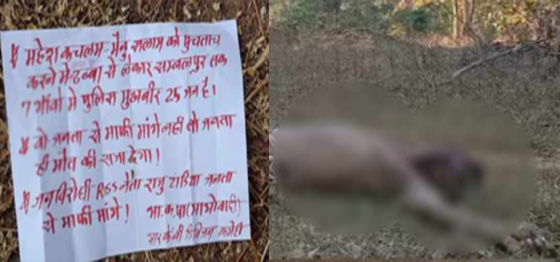 महेश कचलाम-मैनु सलाम को पुचताच
करने मे ढब्बा से लेकार सम्बलपुर तक
7 गाँवो मे पुलिस मुखबीर 25 जन है।
वो जनता से माफी मांगे नही तो जनता
ही मौत की सजा देगा!
जन विरोधी RSS नेता राजु टांडिया जनता
से माफी मांगे!
भा.क.पा (माओवादी)
डिविजन कमेटी